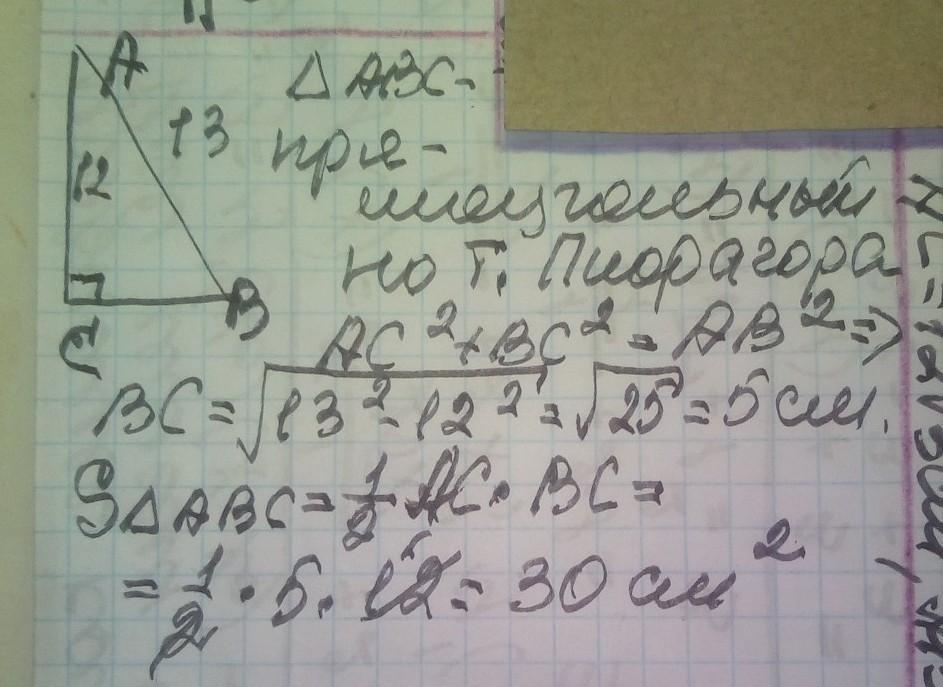 A
13
12
C
B
△ABC-
пря-
моугольный
по т. Пифагора
AC² + BC² = AB² =>
BC = √13² - 12² = √25 = 5 см.
S△ABC = 1/2 AC · BC =
= 1/2 · 5 · 12 = 30 см²